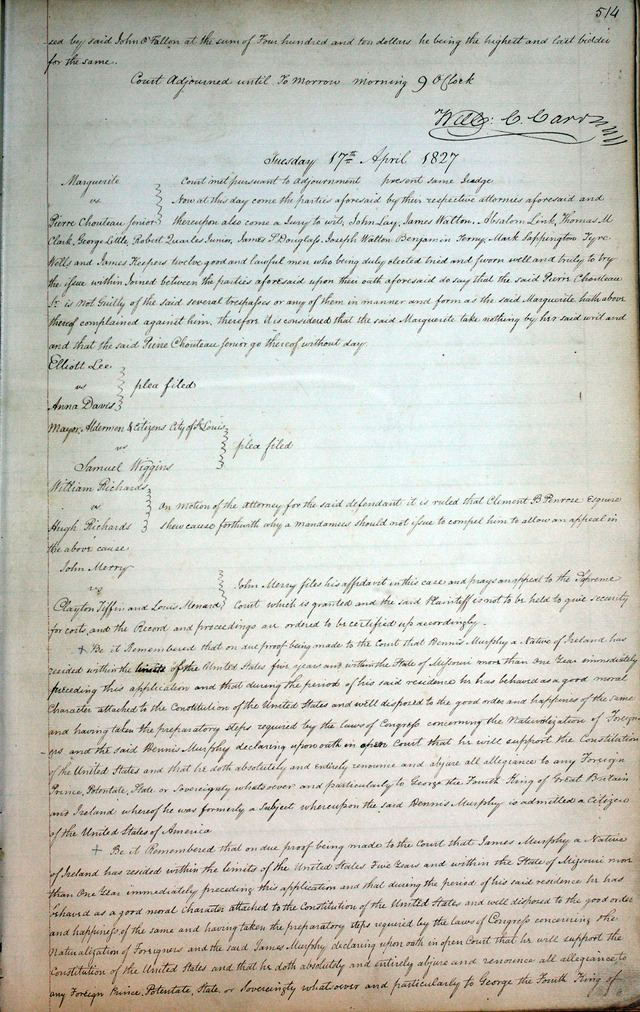 514
sed by said John O'Fallon at the sum of Four hundred and ten dollars he being the highest and last bidder
for the same.
Court Adjourned until To Morrow morning 9 O Clock
Will: C. Carr
Tuesday 17th April 1827
Marguerite
vs
Pierre Chouteau Senior
Court met pursuant to adjournment present same Judge
Now at this day come the parties aforesaid by their respective attornies aforesaid and
thereupon also come a Jury to wit, John Lay, James Walton, Absalom Link, Thomas M
Clark, George Little, Robert Quarles Junior, James S Douglass, Joseph Walton Benjamin Mark Sappington Tyre
Wells and James Keepers twelve good and lawful men who being duly elected tried and sworn well and truly to try
the issue within Joined between the parties aforesaid upon their oath aforesaid do say that the said Pierre Chouteau
Sr is not Guilty of the said several trespasses or any of them in manner and form as the said Marguerite hath above
thereof complained against him, therefore it is considered that the said Marguerite take nothing by her said writ and
and that the said Pierre Chouteau Senior go thereof without day.
Elliott Lee
vs
Anna Davis
plea filed
Mayor, Aldermen & Citizens City of St Louis
vs
Samuel Wiggins
plea filed
William Richards
vs
Hugh Richards
On Motion of the attorney for the said defendant it is ruled that Clement B Penrose Esquire
shew cause forthwith why a mandamus should not issue to compel him to allow an appeal in
the above cause
John Merry
vs
Clayton Tiffin and Louis Menard
John Merry files his affidavit in this case and prays an appeal to the Supreme
Court which is granted and the said Plaintiff is not to be held to give security
for costs, and the Record and proceedings are ordered to be certified up accordingly.
+ Be it Remembered that on due proof being made to the Court that Dennis Murphy a Native of Ireland has
resided within the limits of the United States five years and within the State of Missouri more than One Year immediately
preceding this application and that during the period of his said residence he has behaved as a good moral
Character attached to the Constitution of the United States and well disposed to the good order and happiness of the same
and having taken the preparatory steps required by the laws of Congress concerning the Naturalization of Foreign
ers and the said Dennis Murphy declaring upon oath in open Court that he will support the Constitution
of the United States and that he doth absolutely and entirely renounce and abjure all allegiance to any Foreign
Prince, Potentate, State or Sovereignty whatsoever and particularly to George the Fourth King of Great Britain
and Ireland whereof he was formerly a Subject whereupon the said Dennis Murphy is admitted a Citizen
of the United States of America
+ Be it Remembered that on due proof being made to the Court that James Murphy a Native
of Ireland has resided within the limits of the United States Five Years and within the State of Missouri more
than One Year immediately preceding this application and that during the period of his said residence he has
behaved as a good moral Character attached to the Constitution of the United States and well disposed to the good order
and happiness of the same and having taken the preparatory steps required by the laws of Congress concerning the
Naturalization of Foreigners and the said James Murphy declaring upon oath in open Court that he will support the
Constitution of the United States and that he doth absolutely and entirely abjure and renounce all allegiance to
any Foreign Prince, Potentate, State, or Sovereignty whatsoever and particularly to George the Fourth King of